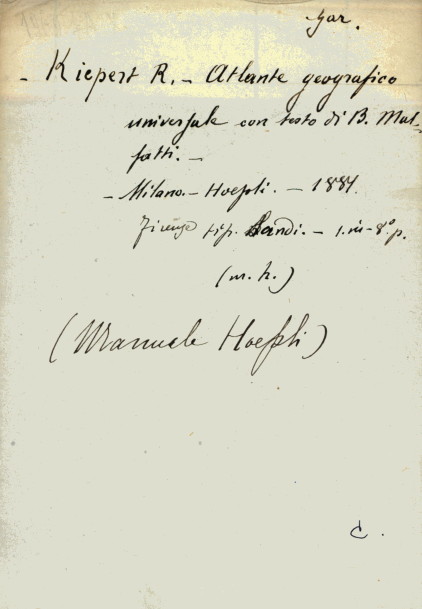 gar.
- Kiepert R. - Atlante geografico
universale con testo di B. Mal-
fatti. -
- Milano. - Hoepli. - 1884.
Firenze tip. Landi. - 1. in - 8° p.
(m. h.)
(Manuale Hoepli)
C.